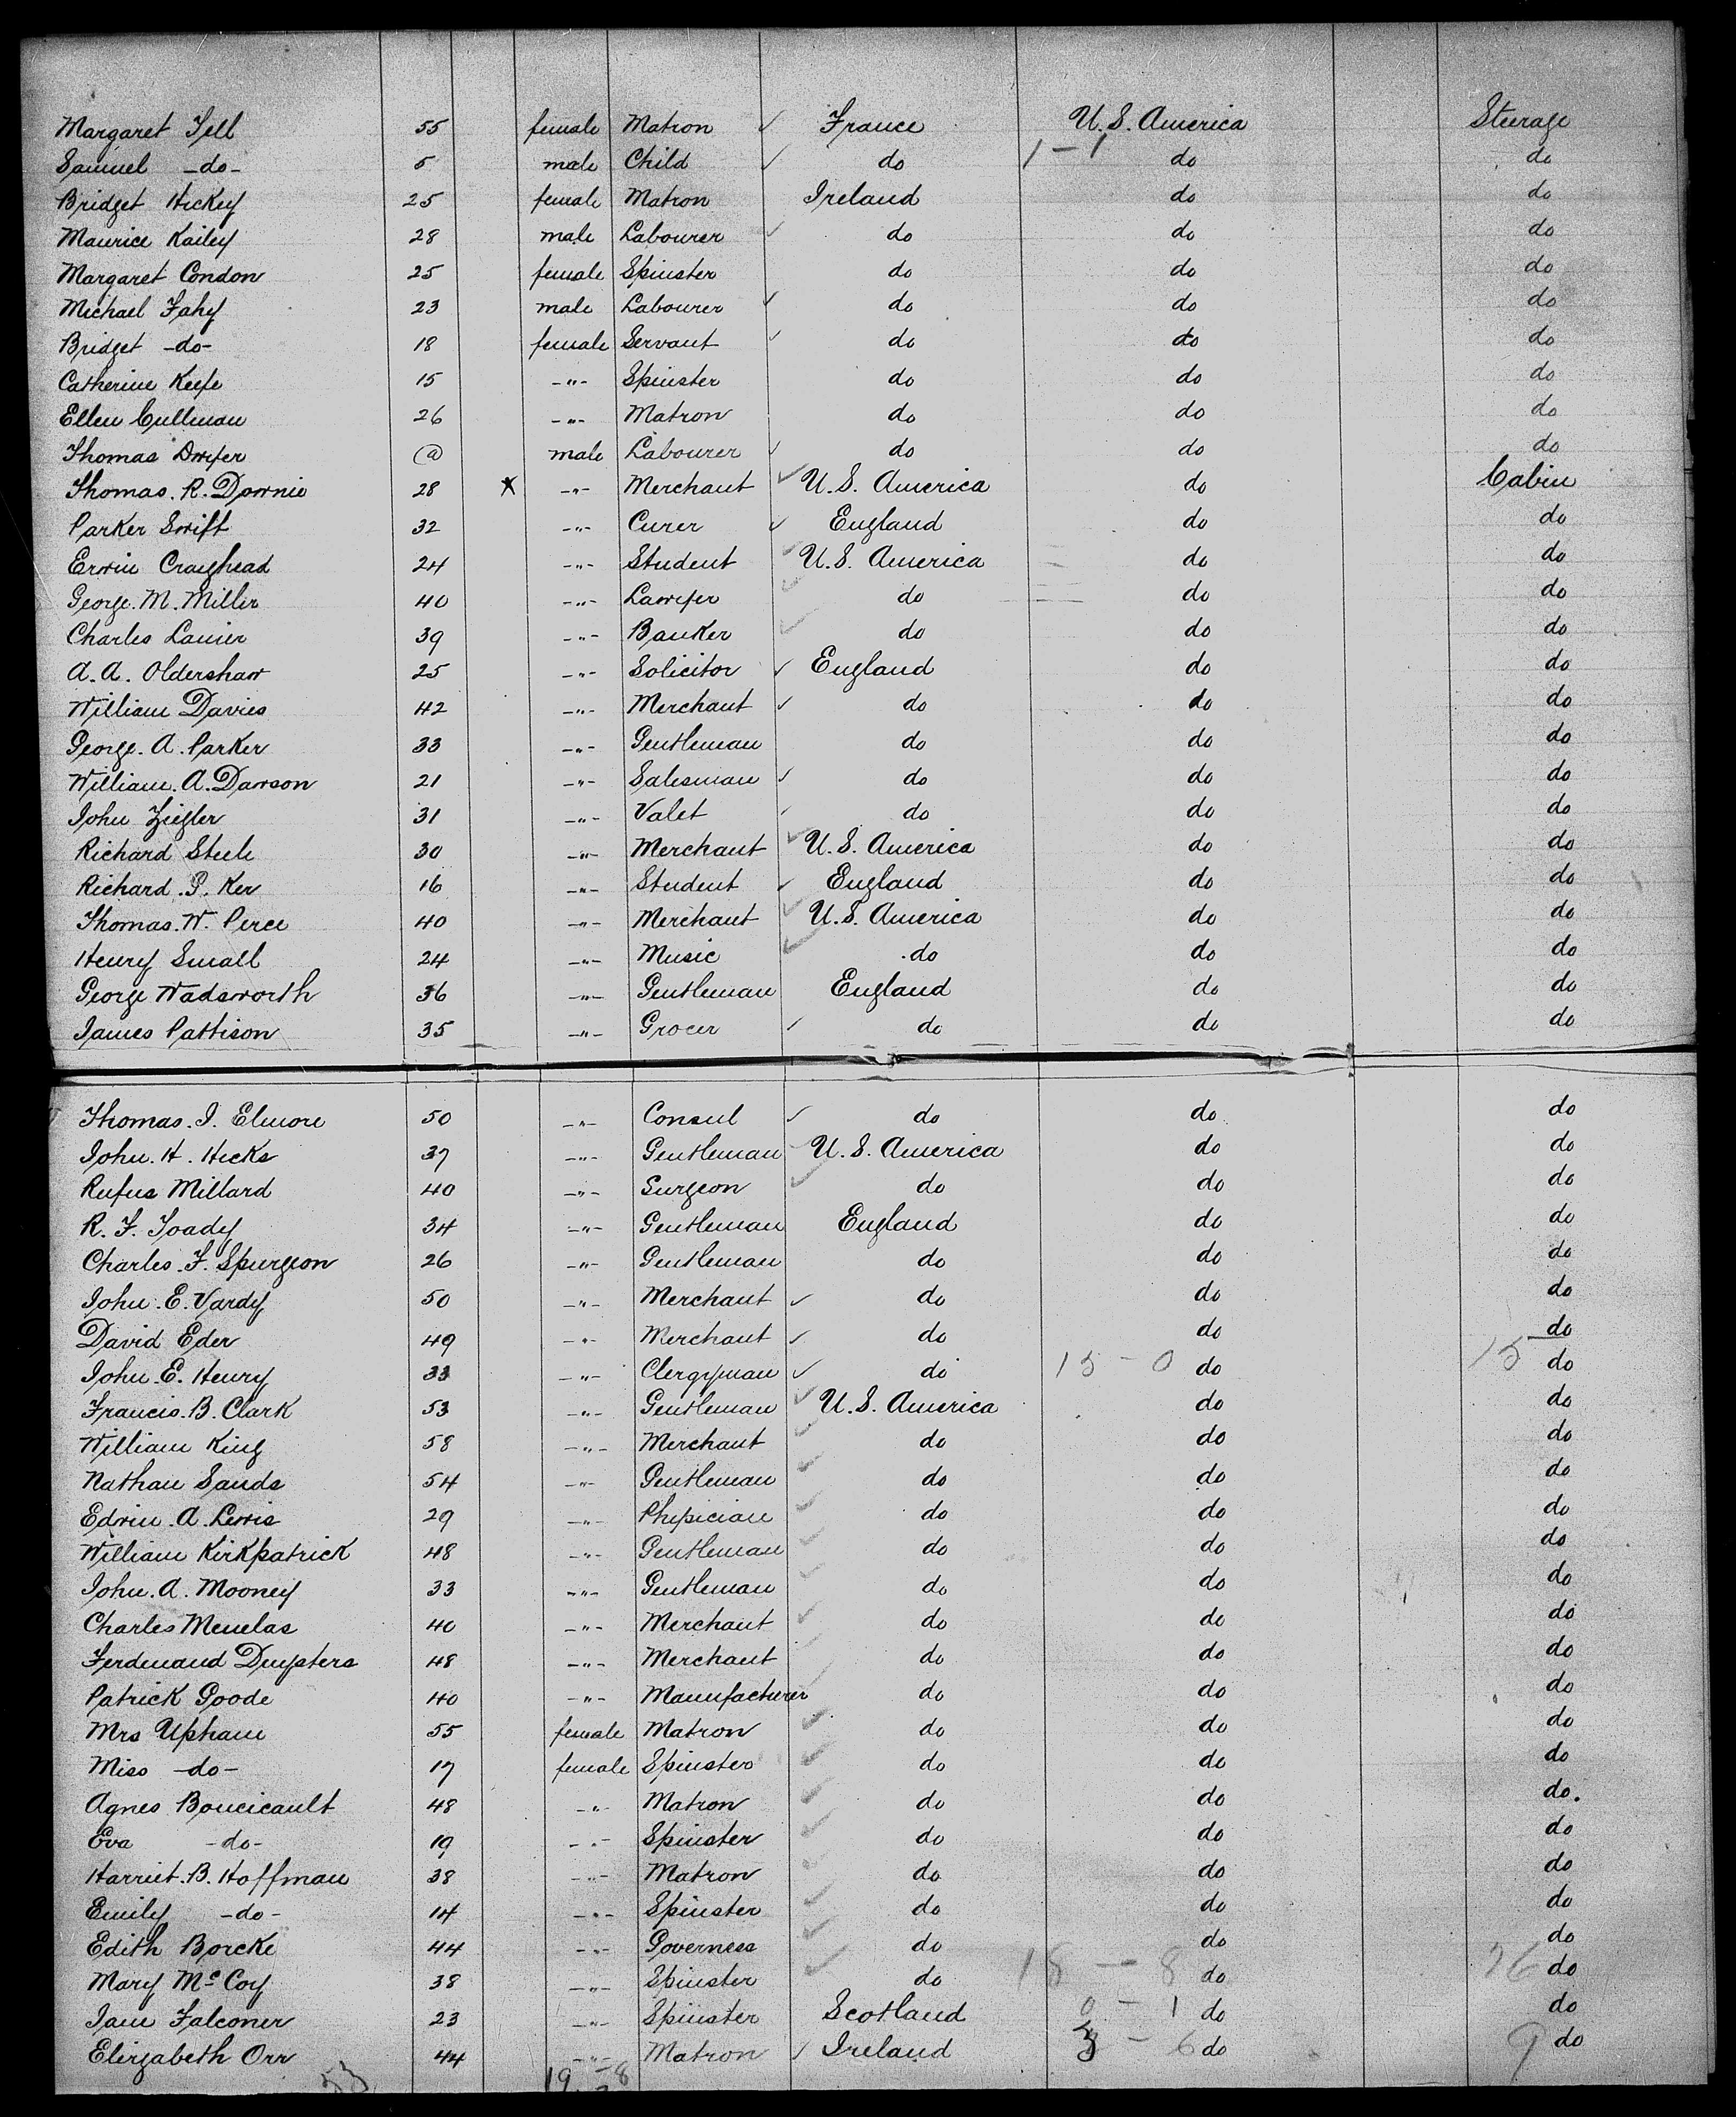 Margaret Tell 55 female Matron ✓ France U.S. America Steerage
Samuel -do- 5 male Child ✓ do 1-1 do do
Bridget Hickey 25 female Matron Ireland do do
Maurice Kailey 28 male Labourer ✓ do do do
Margaret Condon 25 female Spinster do do do
Michael Fahy 23 male Labourer ✓ do do do
Bridget -do- 18 female Servant ✓ do do do
Catherine Keefe 15 -"- Spinster do do do
Ellen Cullinan 26 -"- Matron do do do
Thomas Dwyer @ male Labourer ✓ do do do
Thomas. R. Downie 28 X -"- Merchant ✓ U.S. America do Cabin
Parker Swift 32 -"- Curer ✓ England do do
Erwin Craighead 24 -"- Student ✓ U.S. America do do
George. M. Miller 40 -"- Lawyer ✓ do do do
Charles Lanier 39 -"- Banker ✓ do do do
A. A. Oldershaw 25 -"- Solicitor ✓ England do do
William Davies 42 -"- Merchant ✓ do do do
George. A. Parker 33 -"- Gentleman do do do
William. A. Dawson 21 -"- Salesman ✓ do do do
John Ziegler 31 -"- Valet ✓ do do do
Richard Steele 30 -"- Merchant ✓ U.S. America do do
Richard. P. Ker 16 -"- Student ✓ England do do
Thomas. W. Perce 40 -"- Merchant ✓ U.S. America do do
Henry Small 24 -"- Music ✓ do do do
George Wadsworth 36 -"- Gentleman England do do
James Pattison 35 -"- Grocer ✓ do do do
Thomas. I. Elmore 50 -"- Consul ✓ do do do
John. H. Hicks 37 -"- Gentleman U.S. America do do
Rufus Millard 40 -"- Surgeon ✓ do do do
R. F. Toady 34 -"- Gentleman England do do
Charles. F. Spurgeon 26 -"- Gentleman do do do
John. E. Vardy 50 -"- Merchant ✓ do do do
David Eder 49 -"- Merchant ✓ do do do
John. E. Henry 33 -"- Clergyman ✓ do 15 - 0 do 15 do
Francis. B. Clark 53 -"- Gentleman ✓ U.S. America do do
William King 58 -"- Merchant ✓ do do do
Nathan Sands 54 -"- Gentleman ✓ do do do
Edwin. A. Lewis 29 -"- Physician ✓ do do do
William Kirkpatrick 48 -"- Gentleman ✓ do do do
John. A. Mooney 33 -"- Gentleman ✓ do do do
Charles Menelas 40 -"- Merchant ✓ do do do
Ferdinand 48 -"- Merchant do do do
Patrick Goode 40 -"- Manufacturer do do do
Mrs Upham 55 female Matron ✓ do do do
Miss -do- 17 female Spinster ✓ do do do
Agnes Boucicault 48 -"- Matron ✓ do do do.
Eva -do- 19 -"- Spinster ✓ do do do
Harriet. B. Hoffman 38 -"- Matron ✓ do do do
Emily -do- 14 -"- Spinster ✓ do do do
Edith Borcke 44 -"- Governess ✓ do do do
Mary McCoy 38 -"- Spinster ✓ do 18 - 8 do 26 do
Jane Falconer 23 -"- Spinster Scotland 0 - 1 do do
Elizabeth Orr 44 -"- Matron ✓ Ireland 3 - 6 do 9 do
53 19 - 8